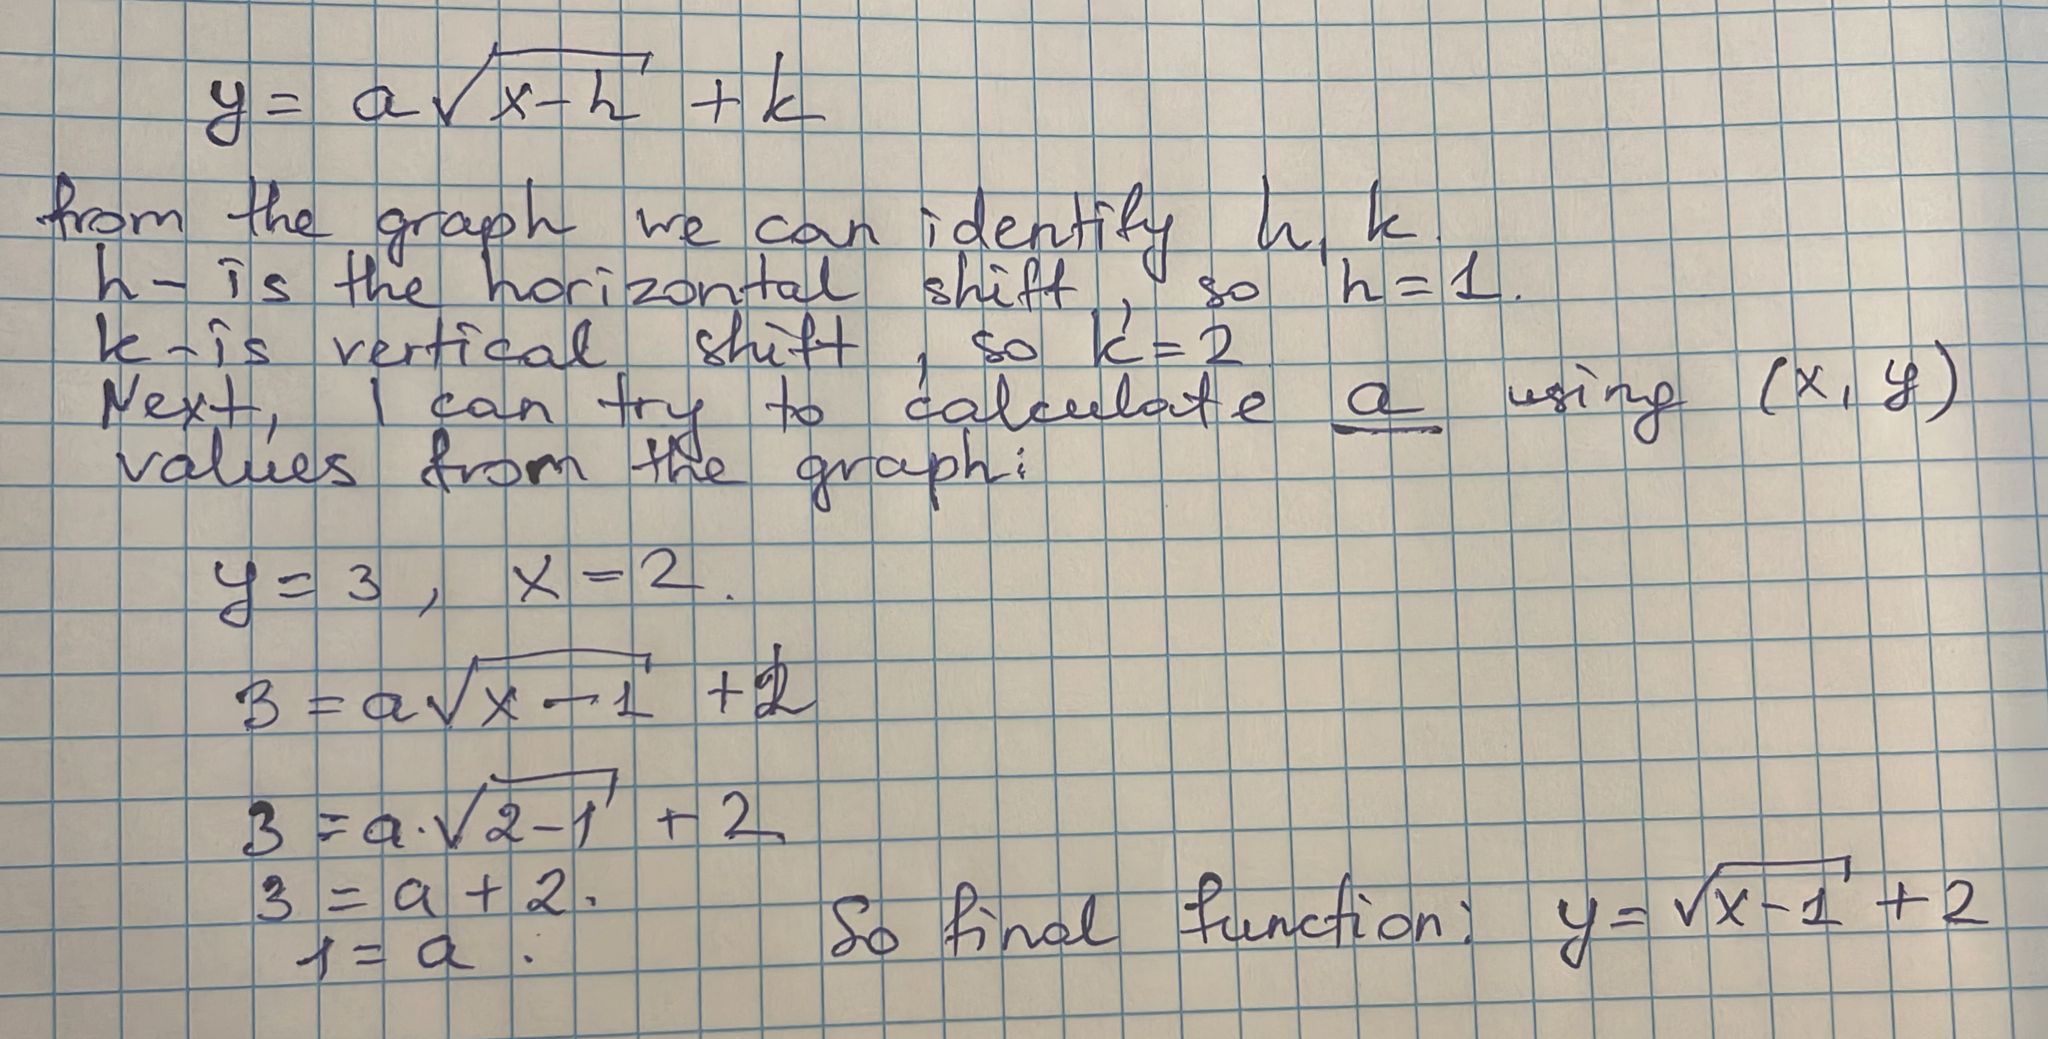 y = a√(x-h) + k
from the graph we can identify h, k.
h - is the horizontal shift, so h = 1.
k - is vertical shift, so k = 2
Next, I can try to calculate a using (x, y)
values from the graph:
y = 3, x = 2.
3 = a√(x-1) + 2
3 = a·√(2-1) + 2
3 = a + 2.
1 = a.
So final function: y = √(x-1) + 2